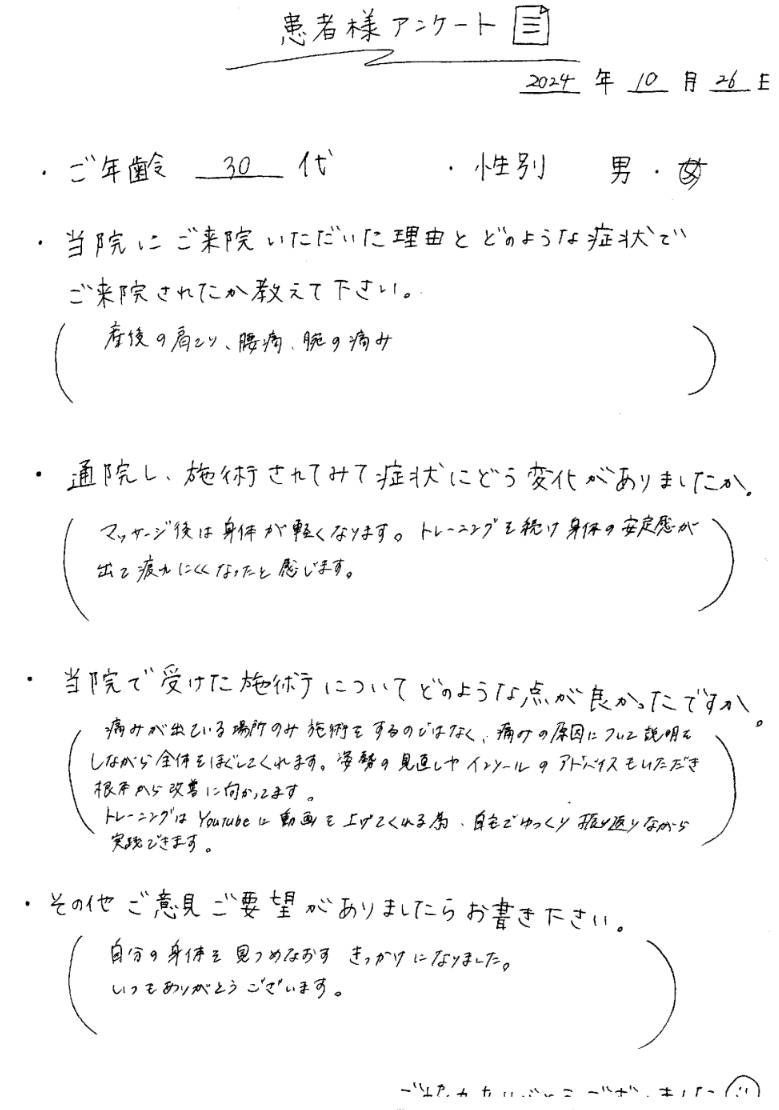 患者様アンケート
2024 年 10 月 26 日
・ご年齢 30 代 ・性別 男・女
・当院にご来院いただいた理由とどのような症状で
ご来院されたか教えて下さい。
産後の肩こり、腰痛、腕の痛み
・通院し、施術されてみて症状にどう変化がありましたか。
マッサージ後は身体が軽くなります。トレーニングを続け身体の安定感が
出て疲れにくくなったと感じます。
・当院で受けた施術についてどのような点が良かったですか。
痛みが出ている場所のみ施術をするのではなく、痛みの原因について説明を
しながら全体をほぐしてくれます。姿勢の見直しやインソールのアドバイスもいただき
根本から改善に向かってます。
トレーニングはYoutubeに動画を上げてくれる為、自宅でゆっくり振り返りながら
実践できます。
・その他ご意見ご要望がありましたらお書き下さい。
自分の身体を見つめなおすきっかけになりました。
いつもありがとうございます。